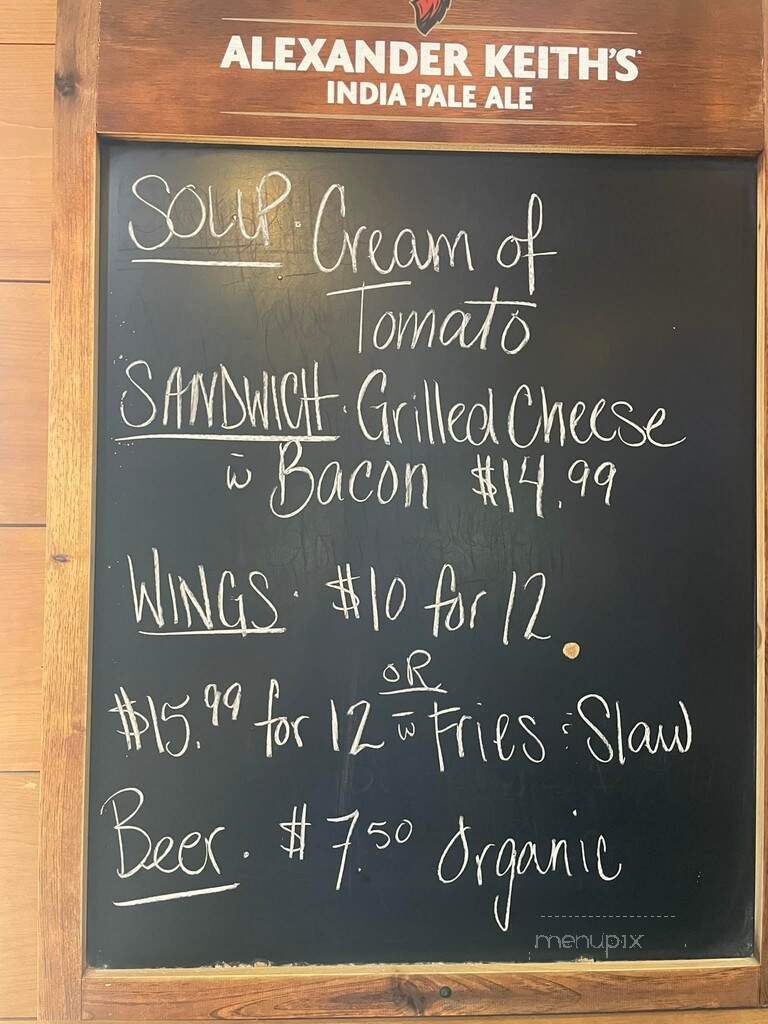 ALEXANDER KEITH'S
INDIA PALE ALE
SOUP. Cream of
Tomato
SANDWICH. Grilled Cheese
w̄ Bacon $14.99
WINGS. $10 for 12
OR
$15.99 for 12 w̄ Fries & Slaw
Beer. $7.50 Organic
menupix